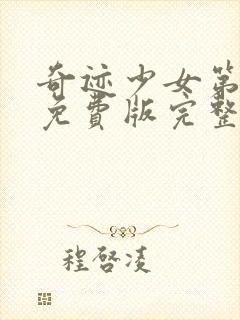 奇迹少女第
免費版完整
程啓凌